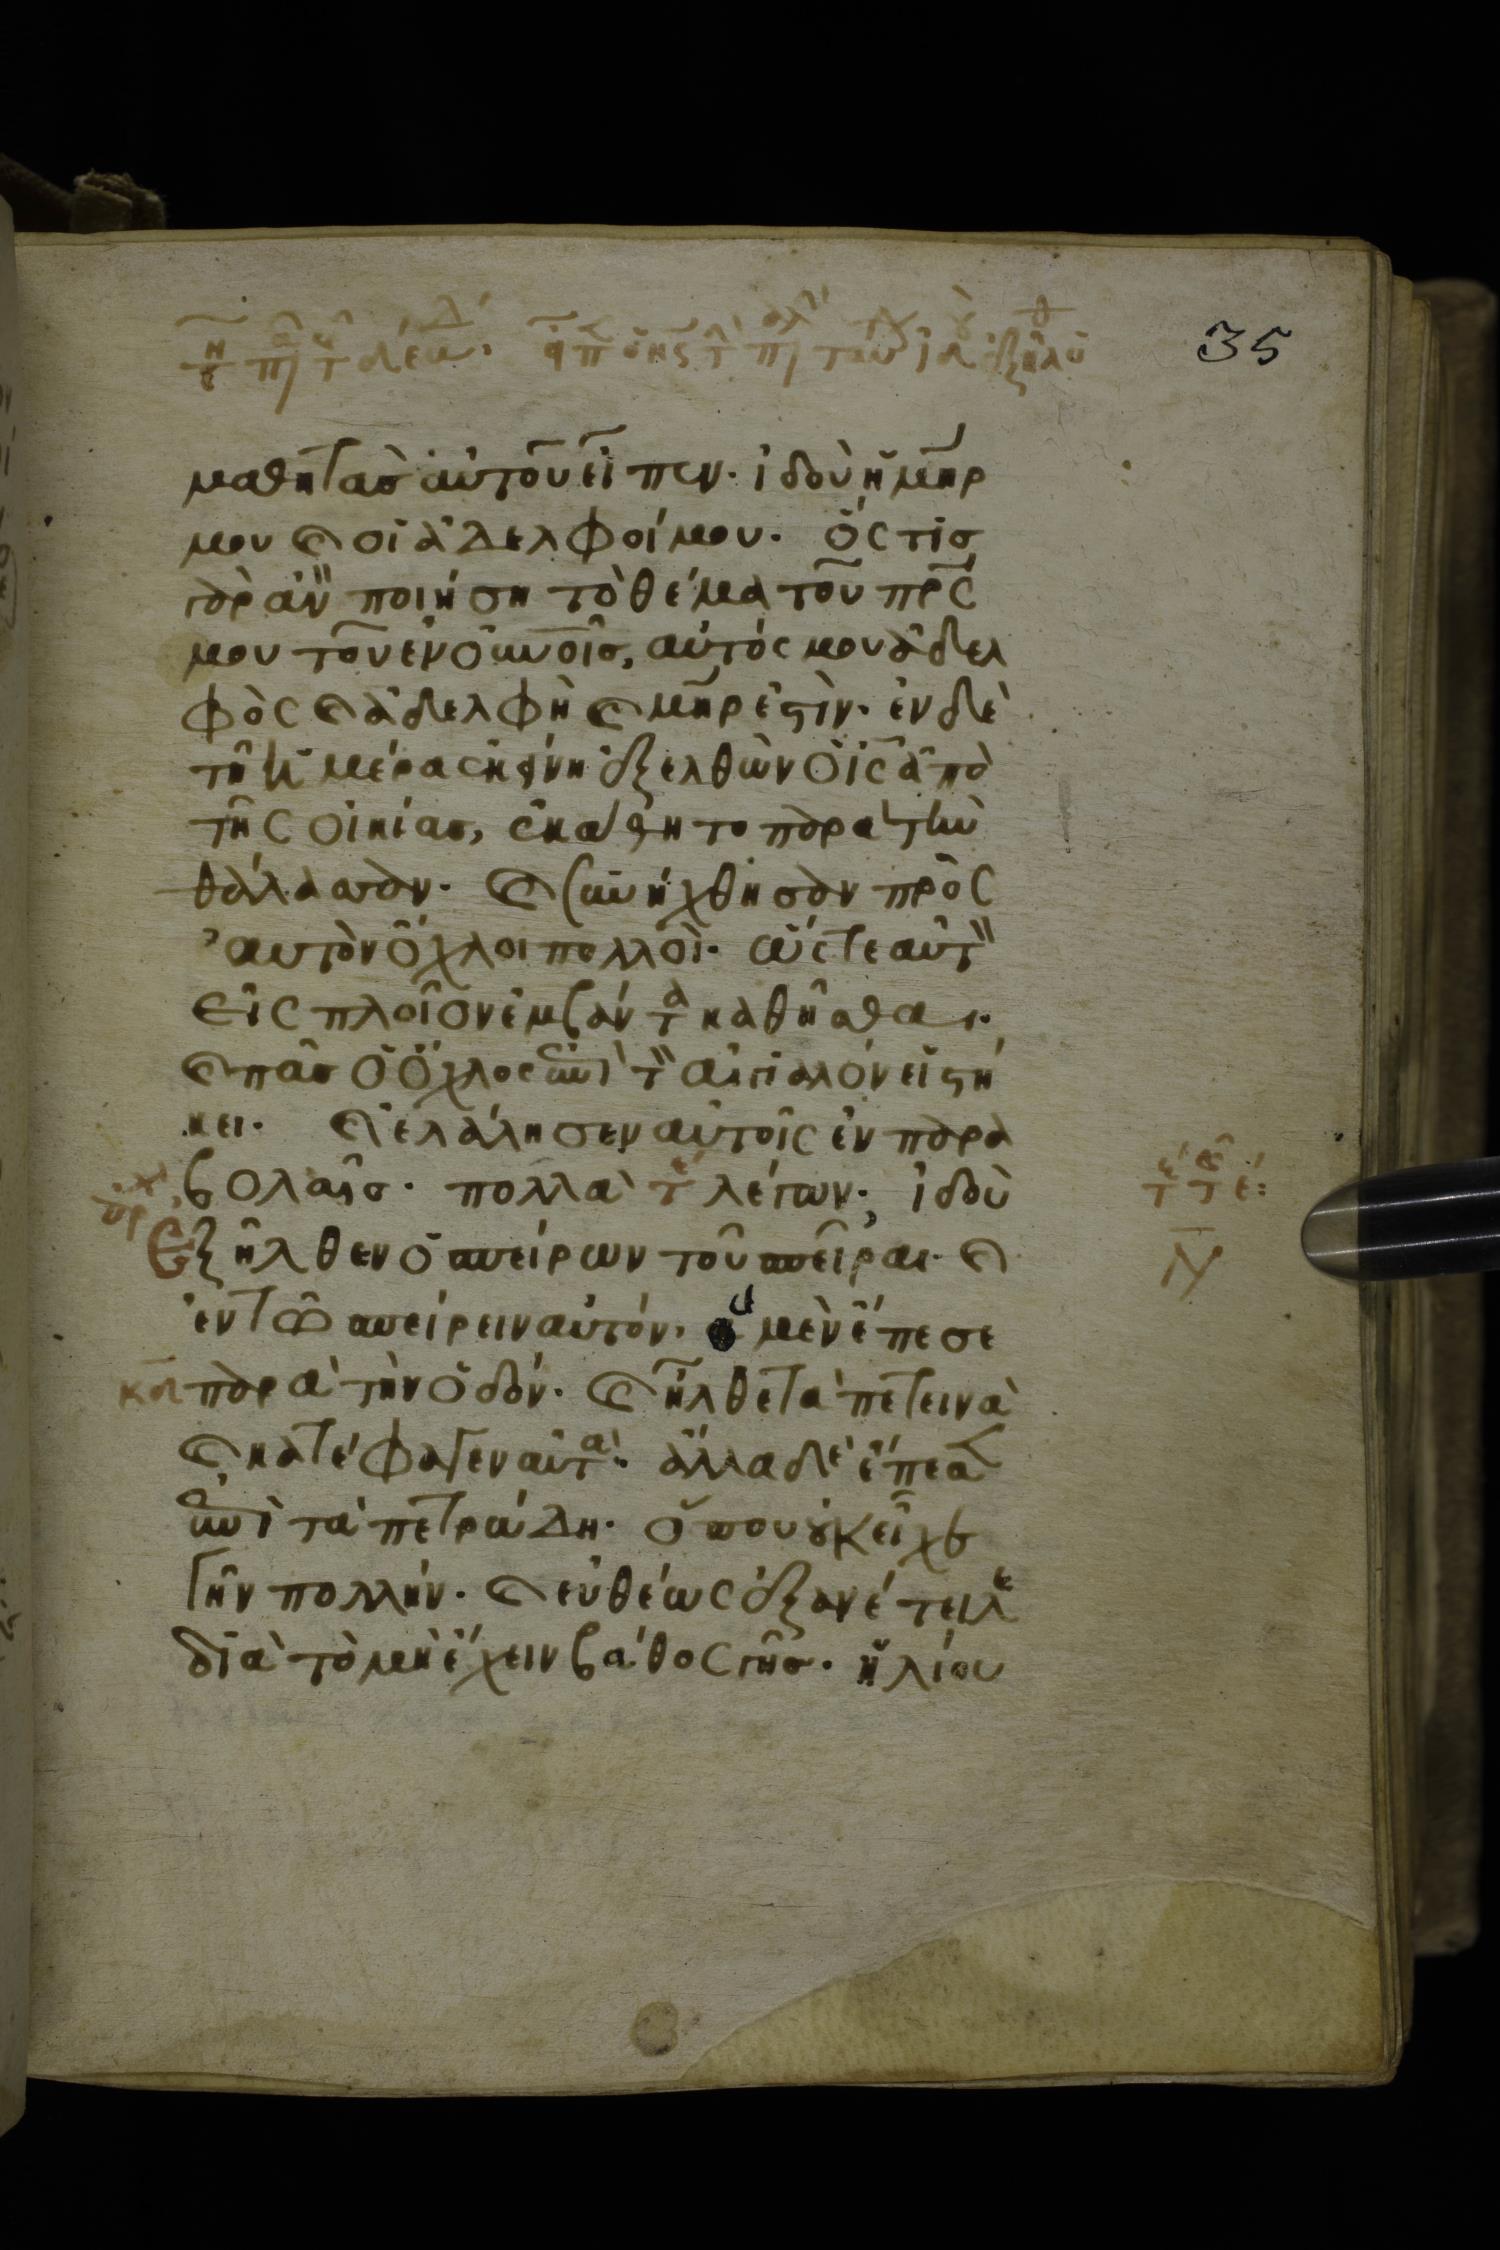 35
μαθητὰς αὐτοῦ εἶπεν· ἰδοὺ ἡ μηρ
μου καὶ οἱ ἀδελφοί μου· ὅστις
γὰρ ἂν ποιήση τὸ θέλημα τοῦ πρς
μου τοῦ ἐν οὐνοις, αὐτός μου ἀδελ
φὸς καὶ ἀδελφὴ καὶ μηρ ἐστὶν· ἐν δὲ
τῆ ἡμέρα ἐκείνη ἐξελθὼν ὁ ις ἀπὸ
τῆς οἰκίας, ἐκάθητο παρὰ τὴν
θάλασσαν· καὶ συνήχθησαν πρὸς
αὐτὸν ὄχλοι πολλοὶ· ὥστε αὐτ
εἰς πλοῖον ἐμβάντα καθῆσθαι·
καὶ πᾶς ὁ ὄχλος ἐπὶ τ αἰγιαλὸν εἱστή
κει· καὶ ἐλάλησεν αὐτοῖς ἐν παρα
βολαῖς· πολλὰ τ λέγων· ἰδοὺ
Ἐξῆλθεν ὁ σπείρων τοῦ σπεῖραι· καὶ
ἐν τῶ σπείρειν αὐτόν, ἃ μὲν ἔπεσε
παρὰ τὴν ὁδόν· καὶ ἦλθε τὰ πετεινὰ
καὶ κατέφαγεν αὐτά· ἄλλα δὲ ἔπεσεν
ἐπὶ τὰ πετρώδη· ὅπου οὐκ εἶχε
γῆν πολλήν· καὶ εὐθέως ἐξανέτειλε
διὰ τὸ μὴ ἔχειν βάθος γῆς· ἡλίου